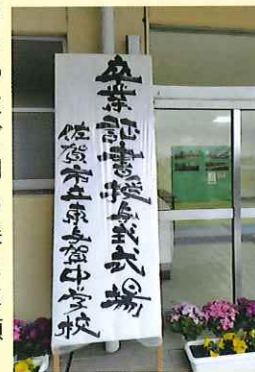 卒業証書授与式式場
佐賀市立東与賀中学校